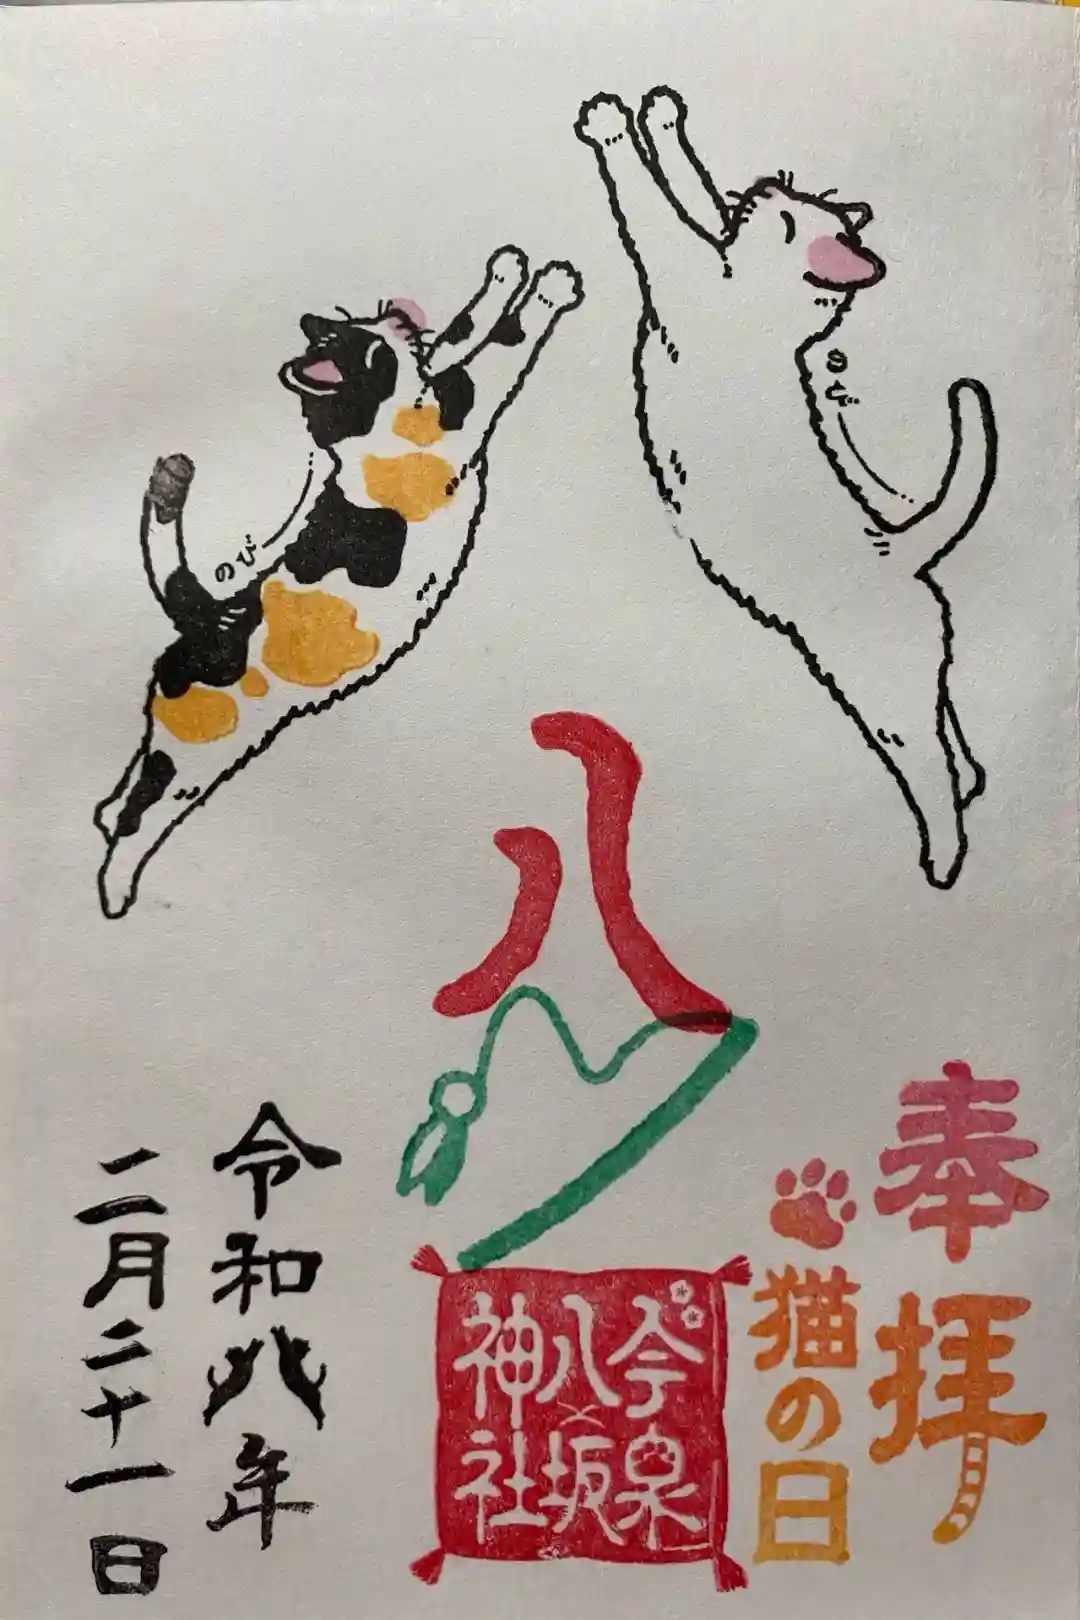 のび
のび
奉拝
猫の日
八
今泉
八坂
神社
令和八年
二月二十一日